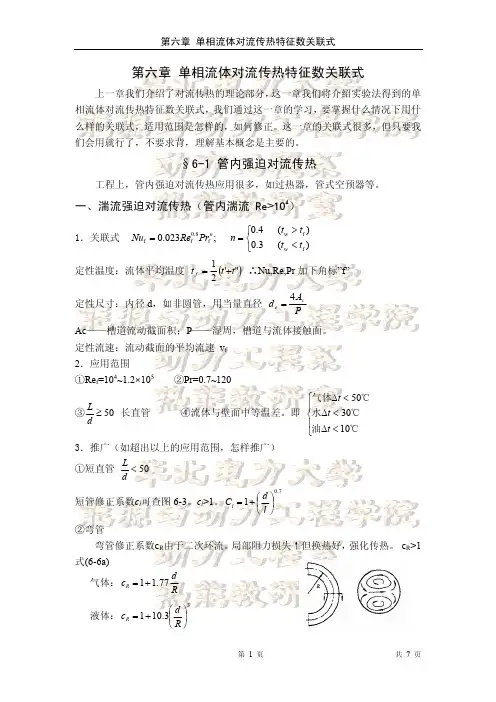 第六章 单相流体对流传热特征数关联式
第六章 单相流体对流传热特征数关联式
上一章我们介绍了对流传热的理论部分，这一章我们将介绍实验法得到的单
相流体对流传热特征数关联式，我们通过这一章的学习，要掌握什么情况下用什
么样的关联式，适用范围是怎样的，如何修正。这一章的关联式很多，但只要我
们会用就行了，不要求背，理解基本概念是主要的。
§6-1 管内强迫对流传热
工程上，管内强迫对流传热应用很多，如过热器，管式空预器等。
一、湍流强迫对流传热（管内湍流 Re>10⁴）
1．关联式 Nu_f = 0.023Re_f^0.8 Pr_f^n; n = { 0.4 (t_w > t_f) 0.3 (t_w < t_f)
定性温度：流体平均温度 t_f = 1/2 (t′+t″) ∴Nu,Re,Pr 加下角标"f"
定性尺寸：内径 d，如非圆管，用当量直径 d_e = 4A_c/P
Ac——槽道流动截面积；P——湿周，槽道与流体接触面。
定性流速：流动截面的平均流速 v_f
2．应用范围
①Re_f=10⁴~1.2×10⁵ ②Pr=0.7~120
③ L/d ≥ 50 长直管 ④流体与壁面中等温差。即 { 气体Δt < 50℃ 水Δt < 30℃ 油Δt < 10℃
3．推广（如超出以上的应用范围，怎样推广）
①短直管 L/d < 50
短管修正系数c_l可查图 6-3。c_l>1。C_l = 1 + (d/l)^0.7
②弯管
弯管修正系数c_R由于二次环流，局部阻力损失↑但换热好，强化传热。 c_R>1
式(6-6a)
气体：c_R = 1 + 1.77 d/R
R
液体：c_R = 1 + 10.3 (d/R)^3
第 1 页 共 7 页
华北电力大学
动力工程系
热能教研室